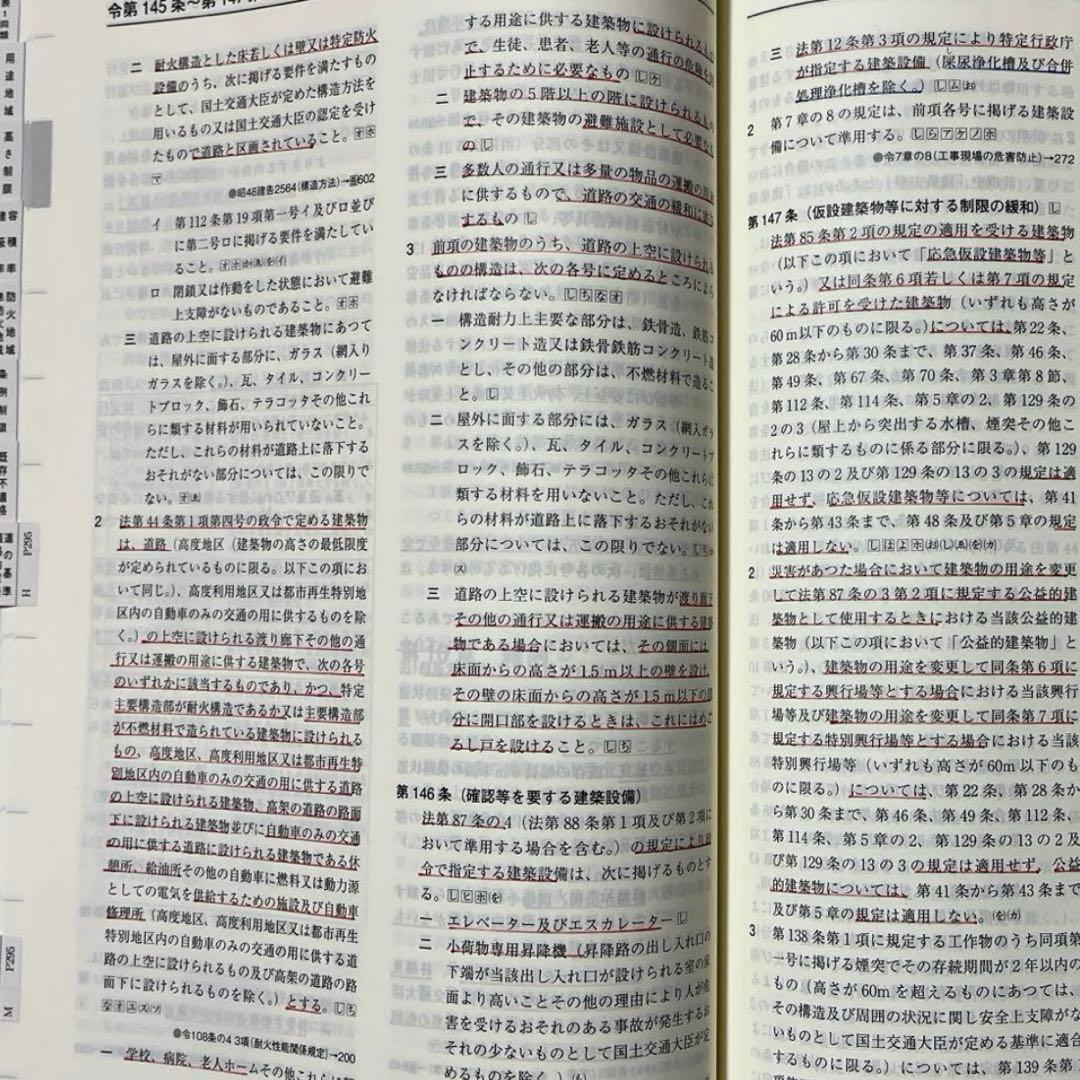 令第145条～第147条
二 耐火構造とした床若しくは壁又は特定防火
設備のうち、次に掲げる要件を満たすもの
として、国土交通大臣が定めた構造方法を
用いるもの又は国土交通大臣の認定を受け
たもので道路と区画されていること。
●昭48建告2564(構造方法)→告602
イ 第112条第19項第一号イ及びロ並び
に第二号ロに掲げる要件を満たしてい
ること。
ロ 閉鎖又は作動をした状態において避難
上支障がないものであること。
三 道路の上空に設けられる建築物にあつて
は、屋外に面する部分に、ガラス（網入り
ガラスを除く。）、瓦、タイル、コンクリー
トブロック、飾石、テラコッタその他これ
らに類する材料が用いられていないこと。
ただし、これらの材料が道路上に落下する
おそれがない部分については、この限りで
ない。
2 法第44条第1項第四号の政令で定める建築物
は、道路（高度地区（建築物の高さの最低限度
が定められているものに限る。以下この項にお
いて同じ。）、高度利用地区又は都市再生特別地
区内の自動車のみの交通の用に供するものを除
く。）の上空に設けられる渡り廊下その他の通
行又は運搬の用途に供する建築物で、次の各号
のいずれかに該当するものであり、かつ、特定
主要構造部が耐火構造であるか又は主要構造部
が不燃材料で造られている建築物に設けられる
もの、高度地区、高度利用地区又は都市再生特
別地区内の自動車のみの交通の用に供する道路
の上空に設けられる建築物、高架の道路の路面
下に設けられる建築物並びに自動車のみの交通
の用に供する道路に設けられる建築物である休
憩所、給油所その他の自動車に燃料又は動力源
としての電気を供給するための施設及び自動車
修理所（高度地区、高度利用地区又は都市再生
特別地区内の自動車のみの交通の用に供する道
路の上空に設けられるもの及び高架の道路の路
面下に設けられるものを除く。）とする。
●令108条の4 3項(耐火性能関係規定)→200
一 学校、病院、老人ホームその他これらに類
する用途に供する建築物に設けられるもの
で、生徒、患者、老人等の通行の危険を防
止するために必要なもの
二 建築物の5階以上の階に設けられるもの
で、その建築物の避難施設として必要なも
の
三 多数人の通行又は多量の物品の運搬の用途
に供するもので、道路の交通の緩和に寄与
するもの
3 前項の建築物のうち、道路の上空に設けられる
ものの構造は、次の各号に定めるところによら
なければならない。
一 構造耐力上主要な部分は、鉄骨造、鉄筋コ
ンクリート造又は鉄骨鉄筋コンクリート造
とし、その他の部分は、不燃材料で造るこ
と。
二 屋外に面する部分には、ガラス（網入ガラ
スを除く。）、瓦、タイル、コンクリートブ
ロック、飾石、テラコッタその他これらに
類する材料を用いないこと。ただし、これ
らの材料が道路上に落下するおそれがない
部分については、この限りでない。
三 道路の上空に設けられる建築物が渡り廊下
その他の通行又は運搬の用途に供する建築
物である場合においては、その側面には、
床面からの高さが1.5m以上の壁を設け、
その壁の床面からの高さが1.5m以下の部
分に開口部を設けるときは、これにはめご
ろし戸を設けること。
第146条（確認等を要する建築設備）
法第87条の4（法第88条第1項及び第2項に
おいて準用する場合を含む。）の規定により政
令で指定する建築設備は、次に掲げるものとす
る。
一 エレベーター及びエスカレーター
二 小荷物専用昇降機（昇降路の出し入れ口の
下端が当該出し入れ口が設けられる室の床
面より高いことその他の理由により人が危
害を受けるおそれのある事故が発生するお
それの少ないものとして国土交通大臣が定
めるものを除く。）
三 法第12条第3項の規定により特定行政庁
が指定する建築設備（屎尿浄化槽及び合併
処理浄化槽を除く。）
2 第7章の8の規定は、前項各号に掲げる建築設
備について準用する。
●令7章の8(工事現場の危害防止)→272
第147条（仮設建築物等に対する制限の緩和）
法第85条第2項の規定の適用を受ける建築物
（以下この項において「応急仮設建築物等」と
いう。）又は同条第6項若しくは第7項の規定
による許可を受けた建築物（いずれも高さが
60m以下のものに限る。）については、第22条、
第28条から第30条まで、第37条、第46条、
第49条、第67条、第70条、第3章第8節、
第112条、第114条、第5章の2、第129条の
2の3（屋上から突出する水槽、煙突その他こ
れらに類するものに係る部分に限る。）、第129
条の13の2及び第129条の13の3の規定は適
用せず、応急仮設建築物等については、第41
条から第43条まで、第48条及び第5章の規定
は適用しない。
2 災害があつた場合において建築物の用途を変更
して法第87条の3第2項に規定する公益的建
築物として使用するときにおける当該公益的建
築物（以下この項において「公益的建築物」と
いう。）、建築物の用途を変更して同条第6項に
規定する興行場等とする場合における当該興行
場等及び建築物の用途を変更して同条第7項に
規定する特別興行場等とする場合における当該
特別興行場等（いずれも高さが60m以下のも
のに限る。）については、第22条、第28条か
ら第30条まで、第46条、第49条、第112条、
第114条、第5章の2、第129条の13の2及
び第129条の13の3の規定は適用せず、公益
的建築物については、第41条から第43条まで
及び第5章の規定は適用しない。
3 第138条第1項に規定する工作物のうち同項第
一号に掲げる煙突でその存続期間が2年以内の
もの（高さが60mを超えるものにあつては、
その構造及び周囲の状況に関し安全上支障がな
いものとして国土交通大臣が定める基準に適合
するものに限る。）については、第139条第1
用途地域
高さ制限
P295
H
P295
M